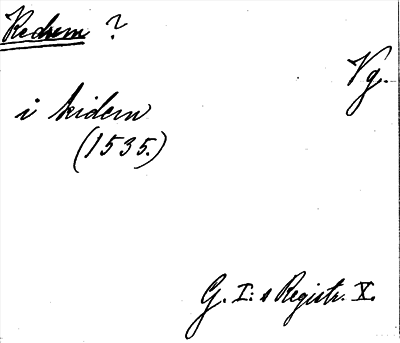 Kedsem ?
Vg.
i kidem
(1535.)
G. I:s Registr. X.